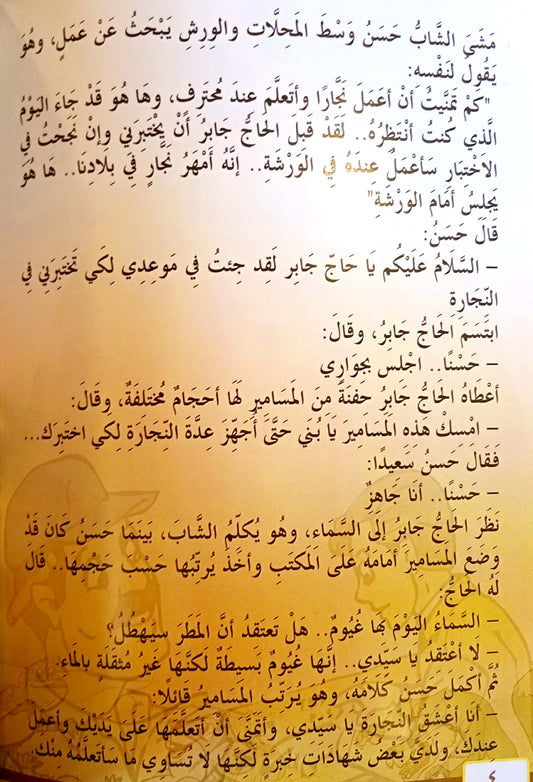 مَشَى الشَّابُّ حَسَنُ وَسْطَ المَحِلَّاتِ والوِرِشِ يَبْحَثُ عَنْ عَمَلٍ، وهُوَ
يَقُولُ لنَفْسِهِ:
"كَمْ تمَنيَّتُ أنْ أعمَلَ نَجَّارًا وأتعلَّمَ عِندَ مُحتَرِفٍ، وهَا هُوَ قَدْ جَاءَ اليَوْمُ
الَّذي كُنتُ أنْتَظرُهُ.. لَقَدْ قَبِلَ الحَاجُّ جَابِرُ أنْ يخْتبَرَني وإنْ نَجَحْتُ في
الاخْتِبَارِ سَأعْمَلُ عِندَهُ فِي الوَرْشَةِ.. إنَّهُ أمْهَرُ نَجَّارٍ فيِ بِلَادِنا.. هَا هُوَ
يَجلِسُ أمَامَ الوَرْشَةِ"
قَالَ حَسَنُ:
– السَّلَامُ عَلَيْكُم يَا حَاجّ جَابِر لَقِد جِئتُ فِي مَوعِدِي لِكَي تَختَبِرَنِي فِي
النّجَارَةِ
ابتَسَمَ الحَاجُّ جَابِرُ، وقَالَ:
– حَسْنًا.. اجْلِس بجِوَارِي
أعْطَاهُ الحَاجُّ جَابِرُ حَفنَةً مِنَ المَسَامِيرِ لَهَا أحَجَامٌ مُختَلِفَةٌ، وقَالَ:
– امْسِكْ هَذِه المَسَامِيرَ يَا بُنَي حَتَّى أُجَهِّزَ عِدَّةَ النِّجَارَةِ لِكَي اختَبِرَك...
فَقَال حَسَنُ سَعِيدًا:
– حَسْنًا.. أنَا جَاهِزٌ
نَظَرَ الحَاجُّ جَابِرُ إلَى السَّمَاءِ، وهُو يُكلِّمُ الشَّابَ، بَينَمَا حَسَنُ كَانَ قَدْ
وَضَعَ المَسَامِيرَ أمَامَهُ عَلَى المَكتَبِ وأخَذَ يُرتّبُهَا حَسْبَ حَجْمِهَا.. قَالَ
لَهُ الحَاجُّ:
– السَّمَاءُ اليَوْمَ بهَا غُيُومٌ.. هَلْ تَعتَقدُ أنَّ المَطَرَ سيَهْطُلُ؟
– لَا أعْتَقِدُ يَا سَيّدِي.. إنَّهَا غُيُومٌ بَسِيطَةٌ لَكنَّهَا غَيرُ مُثقَلَةٍ بِالمَاءِ.
ثُمَّ أكْمَلَ حَسَنُ كَلَامَهُ، وهُو يُرَتبُ المَسَامِيرَ قَائلًا:
– أنَا أعْشَقُ النّجَارَةَ يَا سَيدِي، وأتمَنَّى أنْ أتعلَّمَهَا عَلَى يَدَيْكَ وأعْمَلَ
عِندكَ، ولَدَيَّ بَعْضُ شَهَادَاتِ خِبرَةٍ لَكِنَّهَا لَا تُسَاوِي مَا سَأتَعلَّمُهُ مِنْكَ.
٤